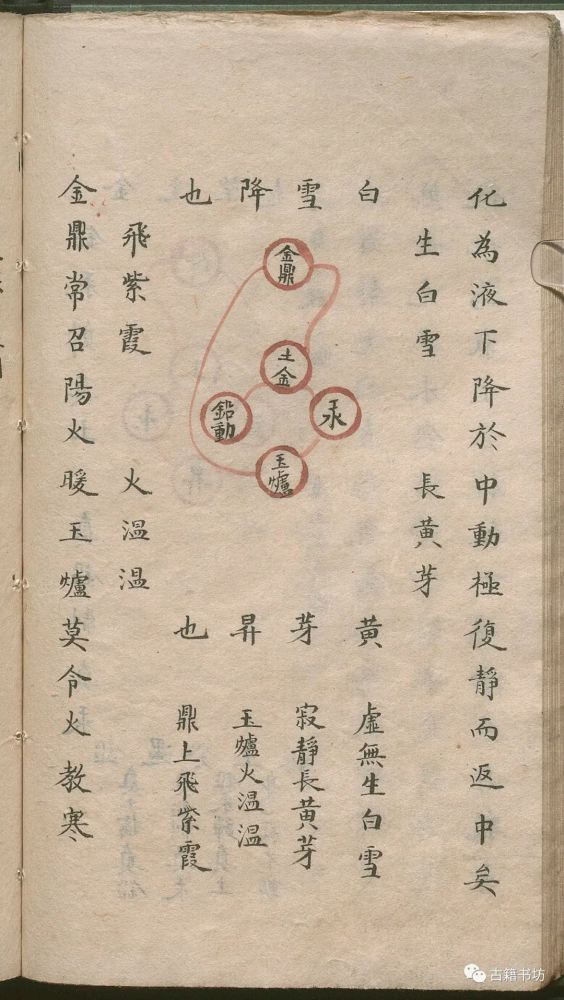 化為液下降於中動極復靜而返中矣
生白雪 長黃芽
白雪降也
金鼎
土金
汞
鉛動
玉爐
黃芽昇也
虛無生白雪
寂靜長黃芽
玉爐火溫溫
鼎上飛紫霞
飛紫霞 火溫溫
金鼎常召陽火暖玉爐莫令火教寒
古籍书坊